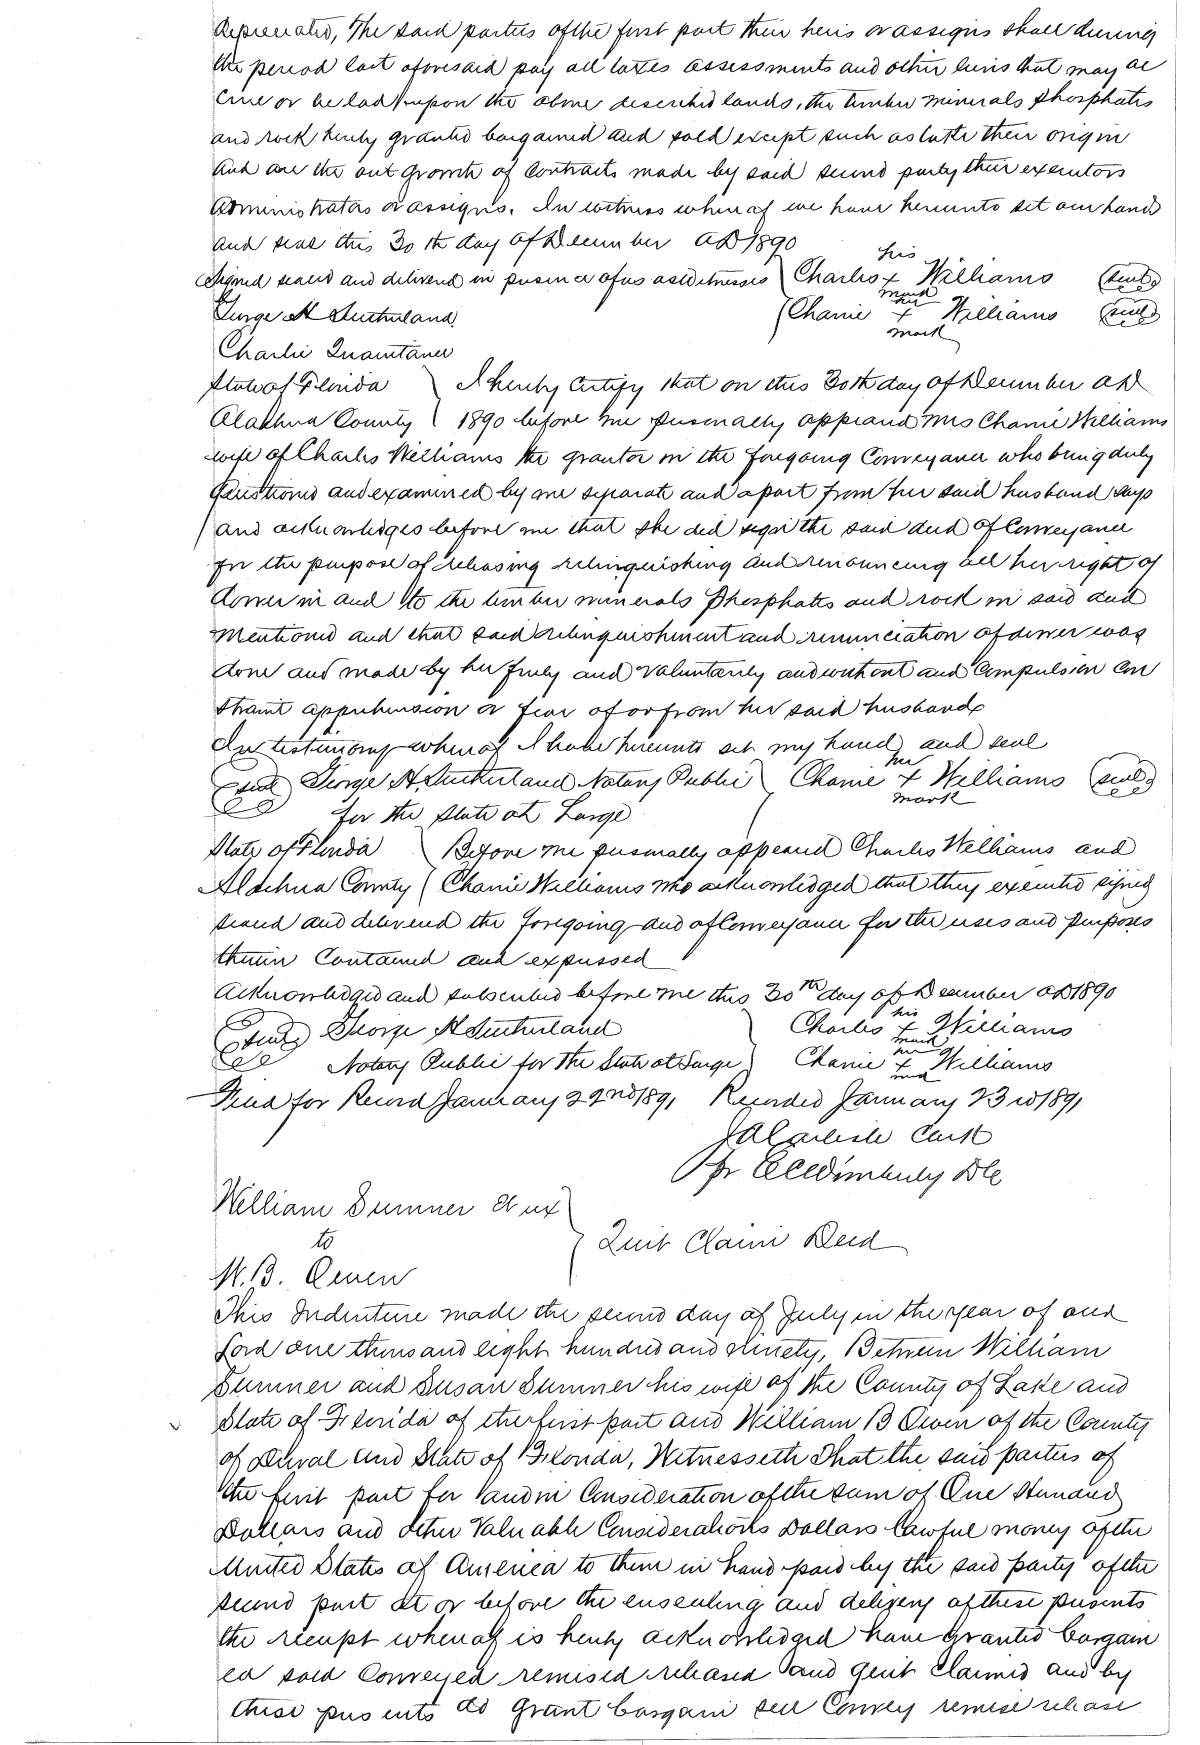 depreciated, The said parties of the first part their heirs or assigns shall during
the period last aforesaid pay all taxes assessments and other liens that may be
due or be laid upon the above described lands, the timber minerals phosphates
and rock hereby granted bargained and sold except such as take their origin
and are the out growth of contracts made by said second party their executors
administrators or assigns. In witness whereof we have hereunto set our hands
and seals this 30th day of December AD 1890
Signed sealed and delivered in presence of us as witnesses Charles his x mark Williams (seal)
George H Sutherland Chanie her x mark Williams (seal)
Charlie
State of Florida I hereby certify that on this 30th day of December AD
Alachua County 1890 before me personally appeared Mrs Chanie Williams
wife of Charles Williams the grantor in the foregoing Conveyance who being duly
questioned and examined by me separate and apart from her said husband says
and acknowledges before me that she did sign the said deed of Conveyance
for the purpose of releasing relinquishing and renouncing all her right of
dower in and to the timber minerals phosphates and rock in said deed
mentioned and that said relinquishment and renunciation of dower was
done and made by her freely and voluntarily and without and Compulsion con
straint apprehension or fear of or from her said husband
In testimony whereof I have hereunto set my hand and seal
(seal) George H. Sutherland Notary Public Chanie her x mark Williams (seal)
for the State at Large
State of Florida Before me personally appeared Charles Williams and
Alachua County Chanie Williams who acknowledged that they executed signed
sealed and delivered the foregoing deed of Conveyance for the uses and purposes
therein Contained and expressed
Acknowledged and subscribed before me this 30th day of December AD 1890
(seal) George H Sutherland Charles his x mark Williams
Notary Public for the State at Large Chanie her x Williams
Filed for Record January 22nd 1891 Recorded January 23rd 1891
J A Carlisle Clerk
Pr E C Wimberly DC
William Sumner et ux
to Quit Claim Deed
W. B. Owen
This Indenture made the second day of July in the year of our
Lord one thousand eight hundred and Ninety, Between William
Sumner and Susan Sumner his wife of the County of Lake and
State of Florida of the first part and William B Owen of the County
of Duval and State of Florida, Witnesseth That the said parties of
the first part for and in Consideration of the sum of One Hundred
Dollars and other Valuable Considerations Dollars lawful money of the
United States of America to them in hand paid by the said party of the
second part at or before the ensealing and delivery of these presents
the receipt whereof is hereby acknowledged have granted bargain
ed sold Conveyed remised released and quit claimed and by
these presents do grant bargain sell Convey remise release